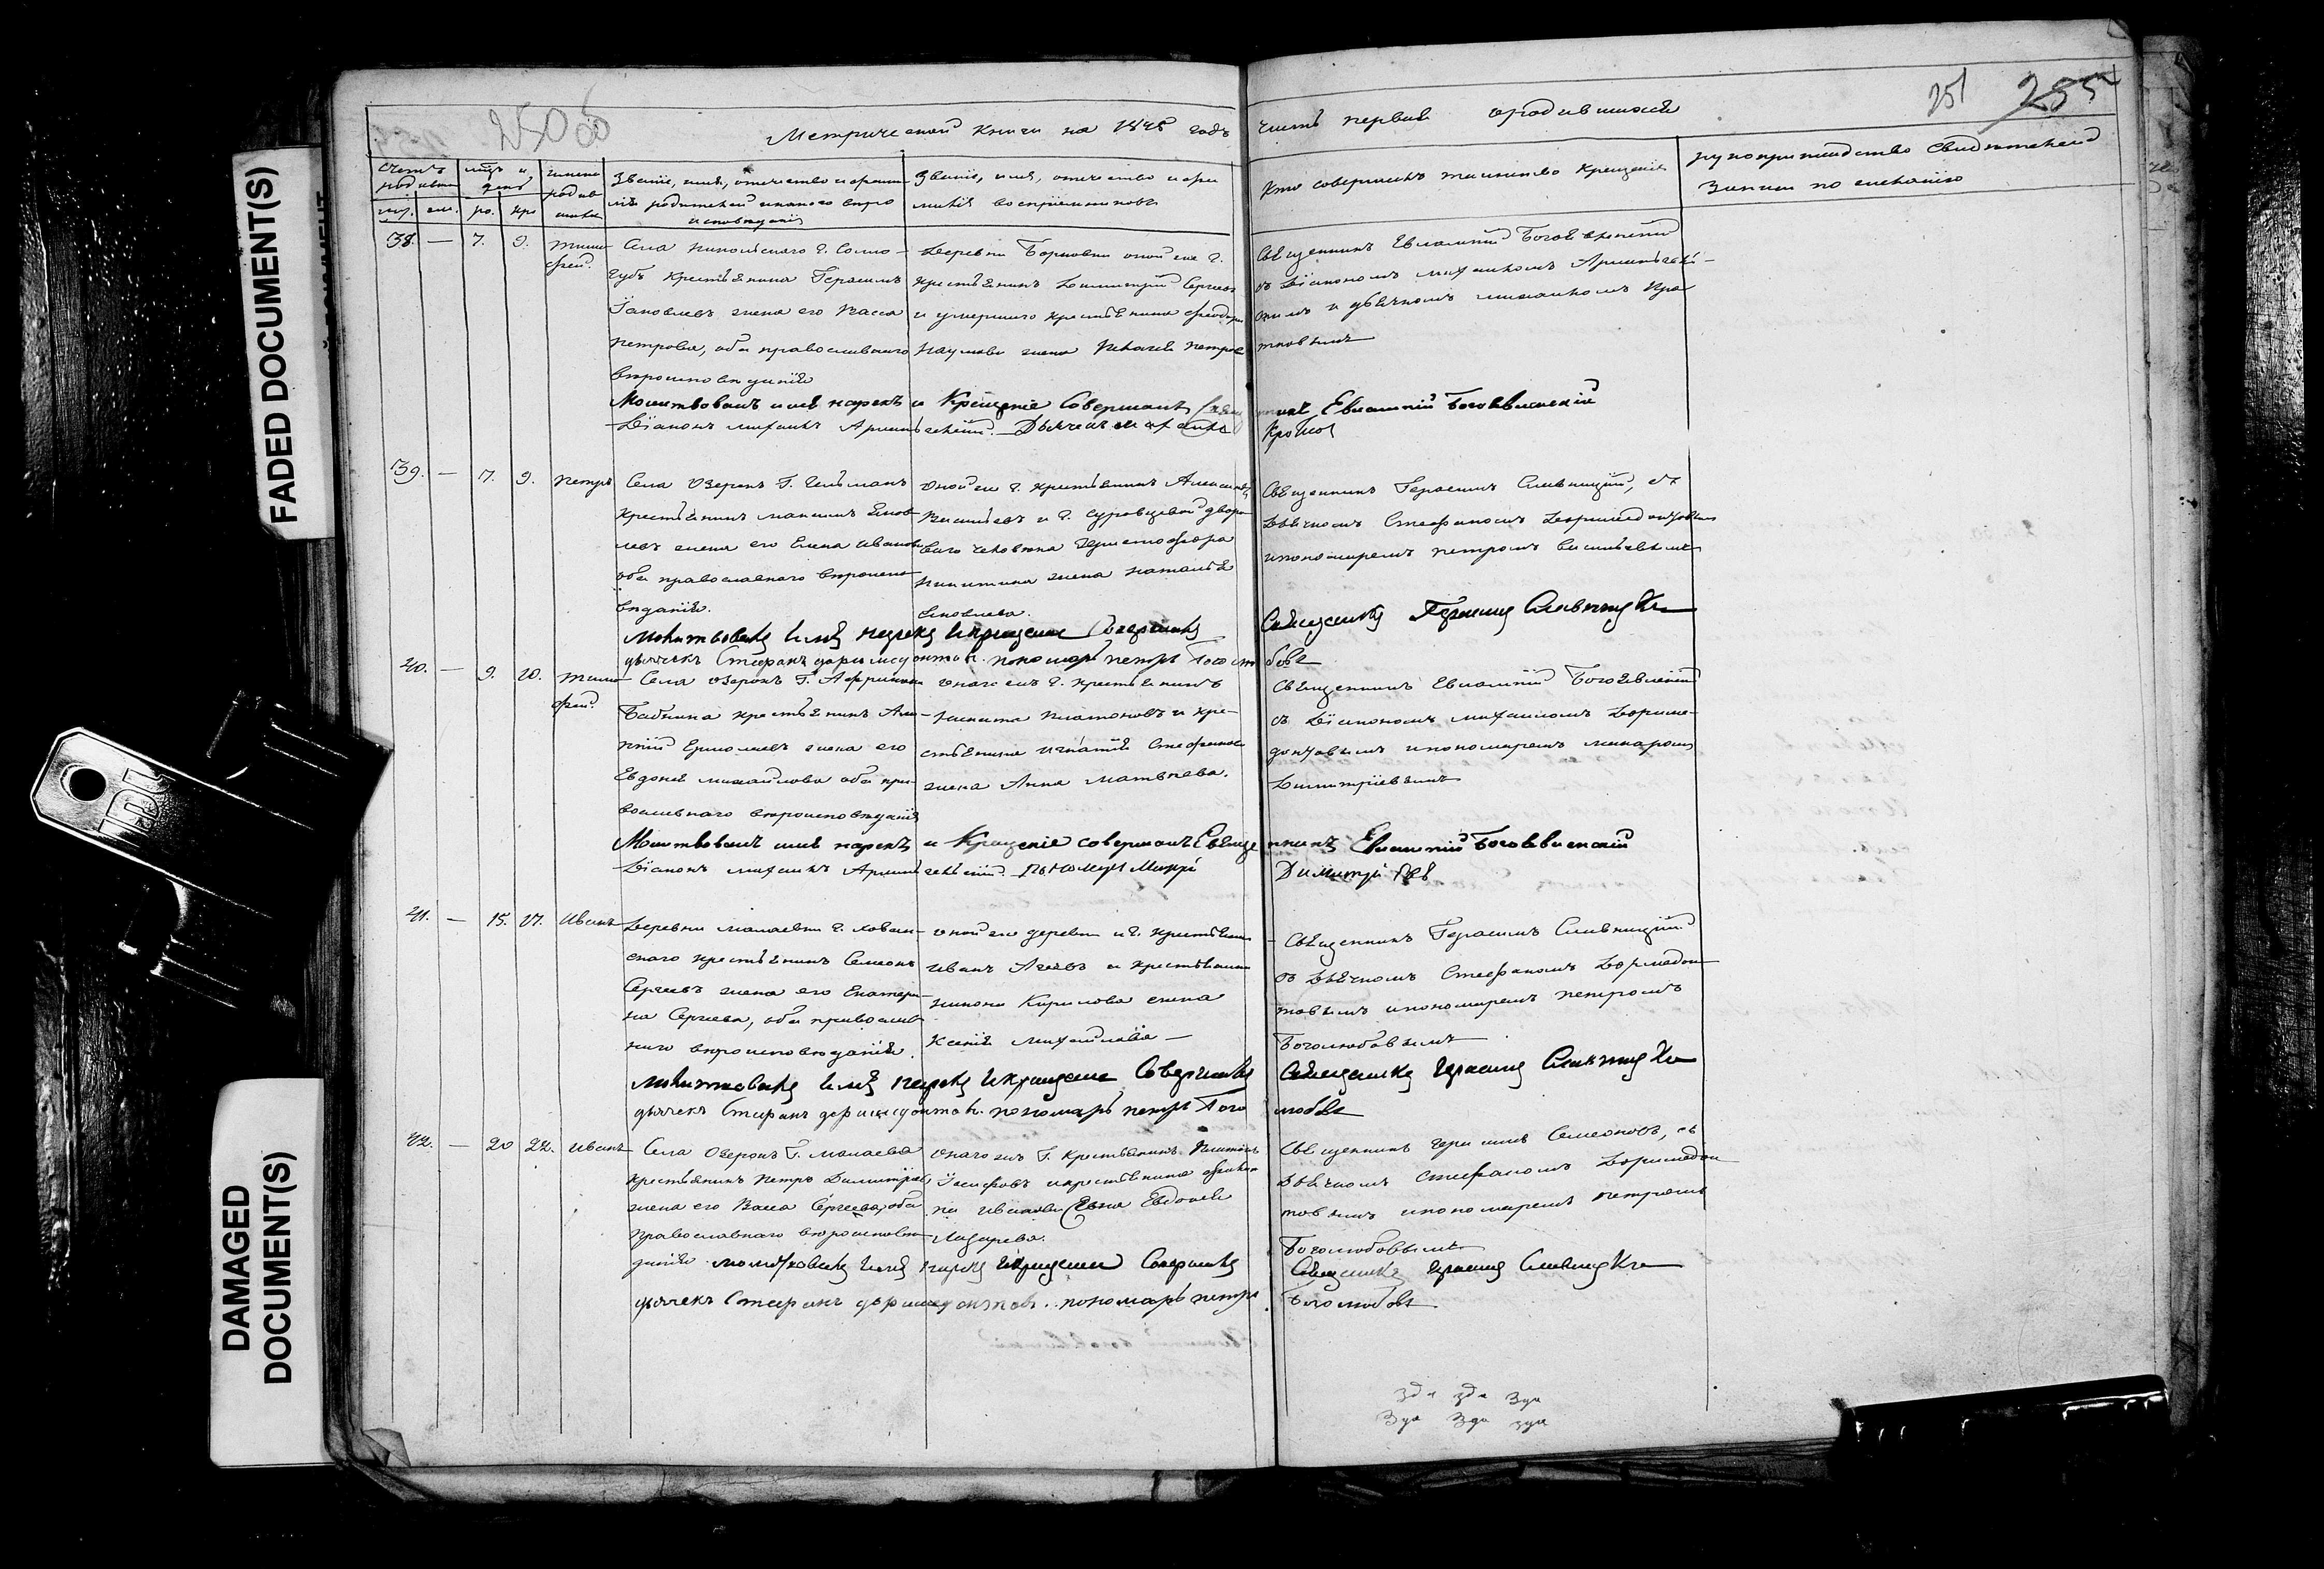 FADED DOCUMENT(S)
DAMAGED
DOCUMENT(S)
251 255
Метрической книги на 1848 годъ часть первая о родившихся
Счетъ родивш
мцъ и день
имена родив шихся
муж. жен. ро. кре
Званіе, имя, отечество и фами
лія родителей и какого веро
исповеданія
Званіе, имя, отечество и фа
милія воспріемниковъ
Кто совершалъ таинство крещенія
рукоприкладство свидетелей
записи по желанію
38. — 7. 9. Тимо
фей.
Села Никольского Г. Солло-
губъ крестьянина Герасимъ
Іаковлевъ жена его Васса
Петрова, оба православнаго
вероисповеданія
Деревни Борковки оной же г.
крестьянинъ Димитрій Сергеевъ
и умершаго крестьянина Феодора
Наумова жена Пелагея Петрова
Священникъ Евлампій Богоявленскій
съ Діакономъ Михаиломъ
и дьячкомъ Михаиломъ Кро
товымъ
Молитвовалъ имя нарекъ и Крещеніе Совершалъ Священникъ Евлампій Богоявленскій
Діаконъ Михаилъ Дьячекъ Михаилъ Кротовъ
39. — 7. 9. Петръ
Села Озерокъ Г.
крестьянинъ Максимъ Яков
левъ жена его Елена Иванова
оба православнаго вероиспо
веданія.
Оной же г. крестьянинъ Алексей
Васильевъ и г. Суровцевой дворо
ваго человека
Никитина жена Наталья
Яковлева.
Священникъ Герасимъ Славницкій, съ
дьячкомъ Стефаномъ Доримедонтовымъ
и пономаремъ Петромъ
Молитвовалъ имя нарекъ и крещеніе Совершалъ Священникъ Герасимъ Славницкій
дьячекъ Стефанъ Доримедонтовъ. пономарь Петръ Боголюбовъ
40. — 9. 10. Тимо
фей.
Села Озерокъ Г.
Бабкина крестьянинъ
Ермолаевъ жена его
Евдокія Михайлова оба пра
вославнаго вероисповеданія
Онаго жъ г. крестьянинъ
Никита Платоновъ и кре-
стьянина Игнатія Стефанова
жена Анна Матвеева.
Священникъ Евлампій Богоявленскій
съ Діакономъ Михаиломъ Дориме-
донтовымъ и пономаремъ Макаромъ
Димитріевымъ
Молитвовалъ имя нарекъ и Крещеніе совершалъ Священникъ Евлампій Богоявленскій
Діаконъ Михаилъ Пономарь Макаръ Димитріевъ
41. — 15. 17. Иванъ
Деревни Малаевки г. Хован-
скаго крестьянинъ Симеонъ
Сергеевъ жена его Екатери-
на Сергеева, оба православ
наго вероисповеданія.
Оной же деревни и г. крестьянинъ
Иванъ Агеевъ и крестьянина
Никона Кирилова жена
Ксенія Михайлова —
Священникъ Герасимъ Славницкій
съ дьячкомъ Стефаномъ Дормедон
товымъ и пономаремъ Петромъ
Боголюбовымъ
Молитвовалъ имя нарекъ и крещеніе Совершалъ Священникъ Герасимъ Славницкій
дьячекъ Стефанъ Доримедонтовъ. пономарь Петръ Боголюбовъ
42. — 20 22. Иванъ
Села Озерокъ Г. Малаева
крестьянинъ Петръ Димитріевъ
жена его Васса Сергеева, оба
православнаго вероиспове
данія
Онаго жъ Г. Крестьянинъ Платонъ
Іосифовъ и крестьянина
Иванова жена Евдокія
Лазарева.
Священникъ Герасимъ Симеоновъ, съ
дьячкомъ Стефаномъ Доримедон
товымъ и пономаремъ Петромъ
Боголюбовымъ
Молитвовалъ имя нарекъ и крещеніе Совершалъ Священникъ Герасимъ Славницкій
дьячекъ Стефанъ Доримедонтовъ. пономарь Петръ Боголюбовъ